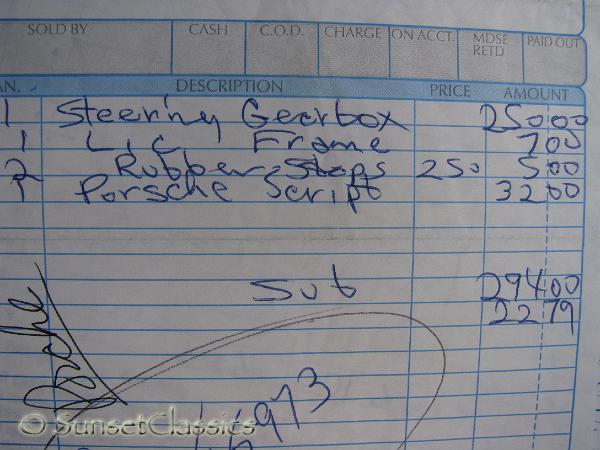 SOLD BY CASH C.O.D. CHARGE ON ACCT. MDSE RETD PAID OUT
AN. DESCRIPTION PRICE AMOUNT
1 Steering Gearbox 25000
1 Lic Frame 700
2 Rubber Stops 250 500
1 Porsche Script 3200
Sub 29400
2279
1973
© SunsetClassics